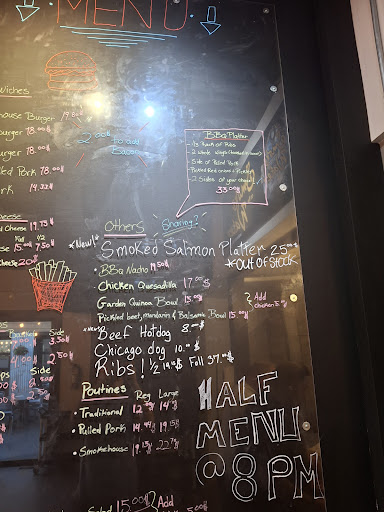 MENU
wiches
house Burger 19.80$
urger 18.00$
urger 18.00$
lled Pork 18.00$
ork 14.32$
2.00$ to add
Bacon
BBQ Platter
- 1/3 Rack of Ribs
- 2 whole wings
- Side of Pulled Pork
- Pickled Red onions + Pickles
- 2 Sides of your choice!
33.00$
Cheese 17.73
Full 1/2
15.00 7.50$
Cheese 20$
Others Sharing?
*New!* Smoked Salmon Platter 25.00$
*OUT OF STOCK
• BBQ Nacho 19.50$
• Chicken Quesadilla 17.00$
Garden Quinoa Bowl 15.00$
Add
chicken 5.00$
Pickled beet, mandarin & Balsamic Bowl 15.00$
*New*
Beef Hotdog 8.00$
Chicago dog 10.00$
Ribs! 1/2 19.95$ Full 37.00$
Side
3.50$
2.50$
Side
2.50$
2.50$
Poutines Reg Large
• Traditional
• Pulled Pork 14.49$ 19.15$
• Smokehouse
HALF
MENU
@ 8PM
Salad 15.00$ Add